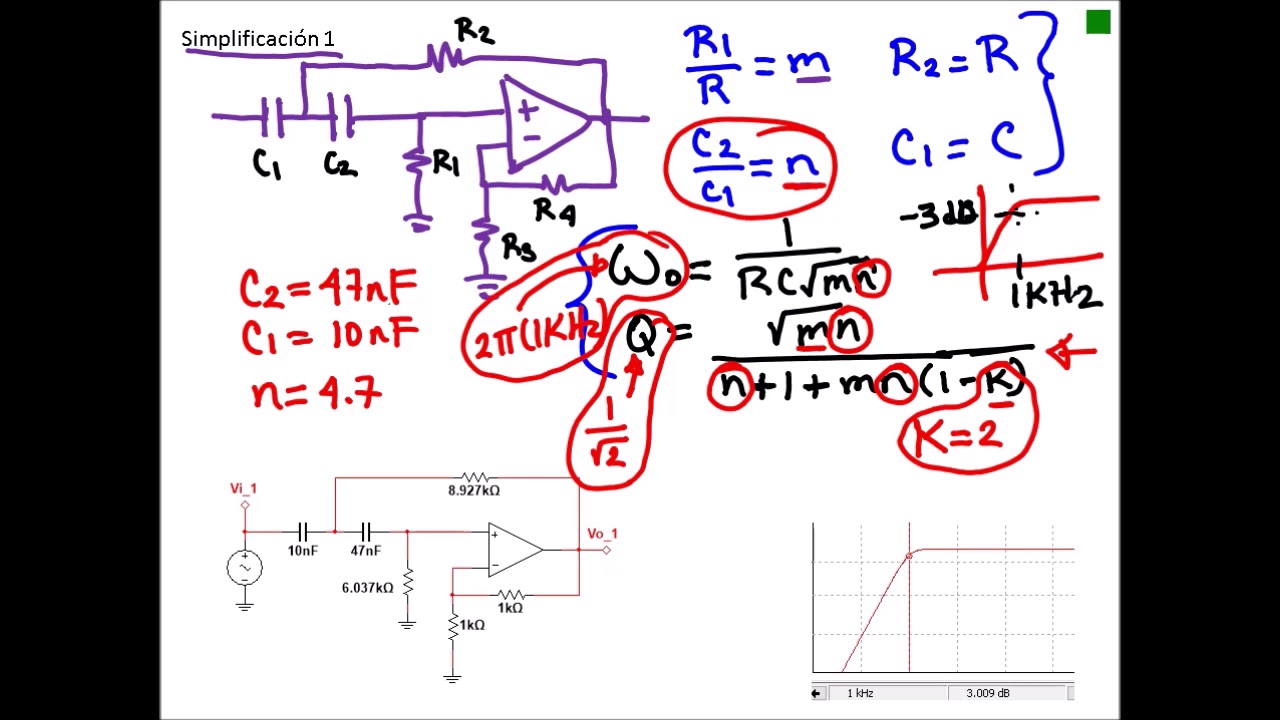 Simplificación 1
R2
C1
C2
R1
R4
R3
R1/R = m
R2 = R
C2/C1 = n
C1 = C
-3dB
1KHz
C2 = 47nF
C1 = 10nF
n = 4.7
2π(1KHz)
ω0 = 1/RC√mn
Q = √mn/n+1+mn(1-K)
1/√2
K=2
Vi_1
8.927kΩ
10nF
47nF
6.037kΩ
+
-
Vo_1
1kΩ
1kΩ
1 kHz
3.009 dB